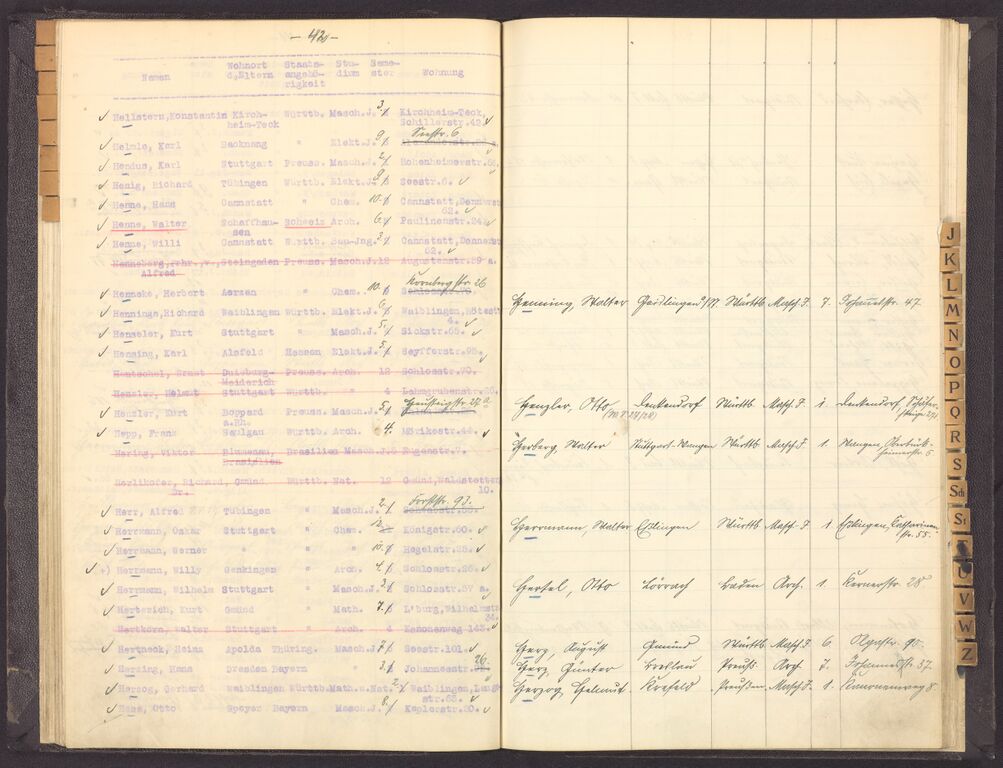 - 42 -
Namen Wohnort d.Eltern Staats-angehö-rigkeit Stu-dium Seme-ster Wohnung
Hellstern, Konstantin Kirch- Württb. Masch.J. 3. Kirchheim-Teck,
heim-Teck Schillerstr.42.
Seestr. 6.
Helmle, Karl Backnang " Elekt.J. 9.
Hendus, Karl Stuttgart Preuss. Masch.J. 2. Hohenheimerstr.
Henig, Richard Tübingen Württb. Elekt.J. 9. Seestr.6.
Henne, Hans Cannstatt " Chem. 10. Cannstatt,
62.
Henne, Walter Schaffhau- Schweiz Arch. 6. Paulinenstr.
sen
Henne, Willi Cannstatt Württb. Bau-Jng. 3. Cannstatt,
62.
Henneberg, Frhr.v., Steingaden Preuss. Masch.J. 12 Augustenstr.59 a.
Alfred
Kornbergstr. 26
Henneke, Herbert Aerzen " Chem. 10.
Henninga, Richard Waiblingen Württb. Elekt.J. 6. Waiblingen,
4.
Henseler, Kurt Stuttgart " Masch.J. 5. Sickstr.65.
Hensing, Karl Alsfeld Hessen Elekt.J. 5. Seyfferstr.95.
Hentschel, Ernst Duisburg- Preuss. Arch. 12 Schlosstr.70.
Meiderich
Henzler, Helmut Stuttgart Württb. " 4 Lehmgrubenstr.26.
Henzler, Kurt Boppard Preuss. Masch.J.
a.Rh.
Hepp, Frank Saulgau Württb. Arch. 4. Mörikestr.44.
Hering, Viktor Blumenau, Brasilien Masch.J. 8 Eugenstr.7.
Brasilien
Herlikofer, Richard, Gmünd Württb. Nat. 12 Gmünd, Waldstetten
Dr. 10.
Forststr. 93.
Herr, Alfred Tübingen " Masch.J. 2.
Herrmann, Oskar Stuttgart " Chem. 12 Königstr.60.
Herrmann, Werner " " " 10. Hegelstr.
+) Herrmann, Willy Genkingen " Arch. 4. Schlosstr.
Herrmann, Wilhelm Stuttgart " Masch.J. 3. Schlosstr.57 a.
Herterich, Kurt Gmünd " Math. 7. L'burg, Wilhelmstr
34.
Hertkorn, Walter Stuttgart " Arch. 4 Kanonenweg 143.
Hertneck, Heinz Apolda Thüring. Masch.J. Seestr.101.
Herzing, Hans Dresden Bayern " 3. Johannesstr. 26.
Herzog, Gerhard Waiblingen Württb. Math.u.Nat. 2. Waiblingen,
str.65.
Hess, Otto Speyer Bayern Masch.J. 8. Keplerstr.20.
Henning, Walter Geislingen Württb Masch.J. 7. Johannesstr. 47
Henzler, Otto Denkendorf Württb Masch.J. 1 Denkendorf
Herberg, Walter Stuttgart-Wangen Württb Masch.J. 1 Wangen,
Herrmann, Walter Esslingen Württb Masch.J. 1 Esslingen, Katharinen
str. 55.
Hertel, Otto Lörrach Baden Arch. 1. Kernerstr. 28
Herz, August Gmünd Württb Masch.J. 6 Olgastr. 90.
Herz, Günter Breslau Preuß. Arch 7. Johannesstr. 57.
Herzog, Helmut Krefeld Preußen Masch.J. 1. Kanonenweg 8.
J
K
L
M
N
O
P
Q
R
S
Sch
St
T
U
V
W
Z